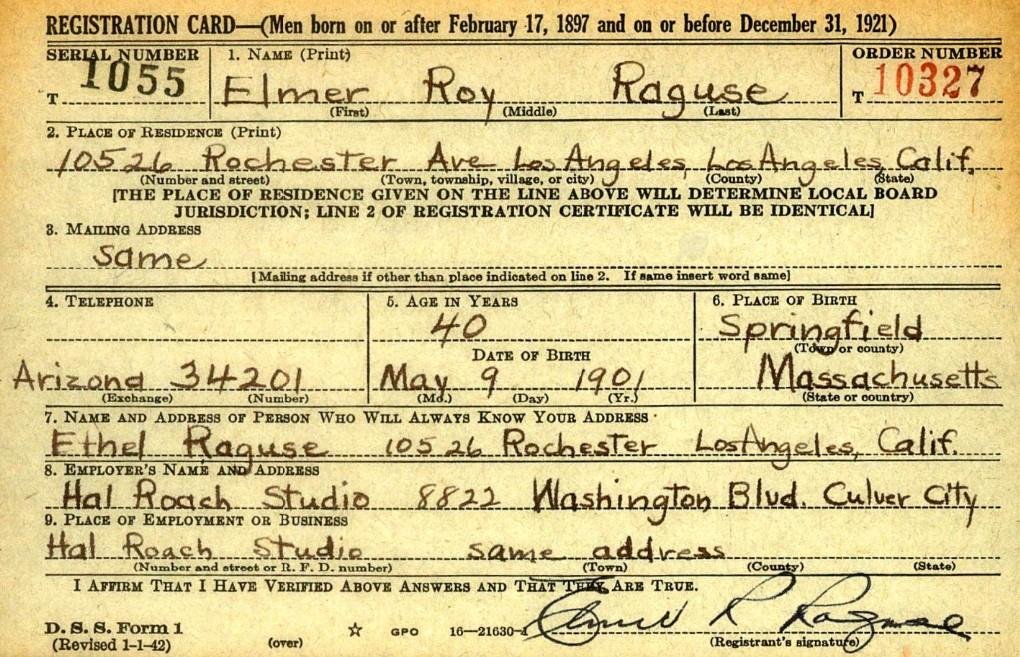 REGISTRATION CARD—(Men born on or after February 17, 1897 and on or before December 31, 1921)
SERIAL NUMBER 1. NAME (Print) ORDER NUMBER
T 1055 Elmer Roy Raguse T 10327
(First) (Middle) (Last)
2. PLACE OF RESIDENCE (Print)
10526 Rochester Ave Los Angeles, Los Angeles, Calif.
(Number and street) (Town, township, village, or city) (County) (State)
[THE PLACE OF RESIDENCE GIVEN ON THE LINE ABOVE WILL DETERMINE LOCAL BOARD
JURISDICTION; LINE 2 OF REGISTRATION CERTIFICATE WILL BE IDENTICAL]
3. MAILING ADDRESS
same
[Mailing address if other than place indicated on line 2. If same insert word same]
4. TELEPHONE 5. AGE IN YEARS 6. PLACE OF BIRTH
40 Springfield
DATE OF BIRTH (Town or county)
Arizona 34201 May 9 1901 Massachusetts
(Exchange) (Number) (Mo.) (Day) (Yr.) (State or country)
7. NAME AND ADDRESS OF PERSON WHO WILL ALWAYS KNOW YOUR ADDRESS
Ethel Raguse 10526 Rochester Los Angeles, Calif.
8. EMPLOYER'S NAME AND ADDRESS
Hal Roach Studio 8822 Washington Blvd. Culver City
9. PLACE OF EMPLOYMENT OR BUSINESS
Hal Roach Studio same address
(Number and street or R. F. D. number) (Town) (County) (State)
I AFFIRM THAT I HAVE VERIFIED ABOVE ANSWERS AND THAT THEY ARE TRUE.
Elmer R Raguse
D. S. S. Form 1
(Revised 1-1-42) (over) ☆ GPO 16—21630-1 (Registrant's signature)